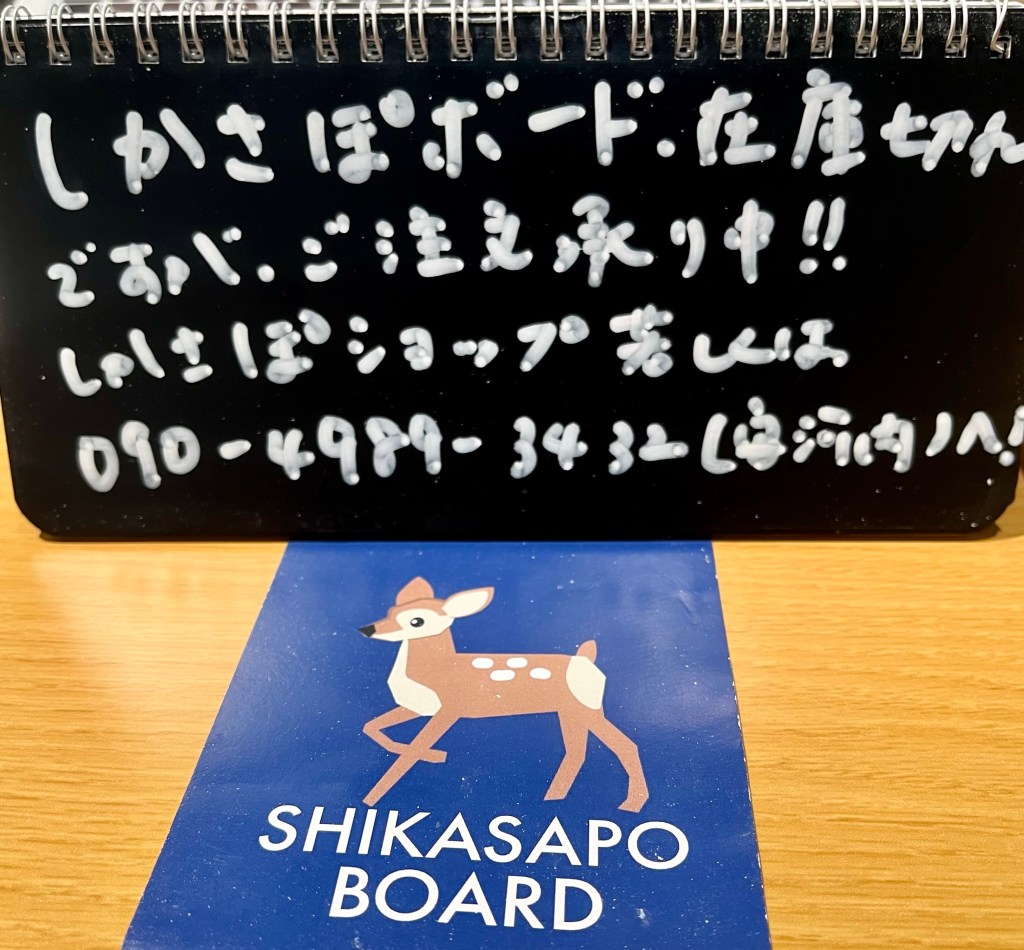 しかさぽボード.在庫切れ
ですが.ご注文承り中!!
しかさぽショップ若しくは
090-4989-3432(宮河内)へ!
SHIKASAPO
BOARD